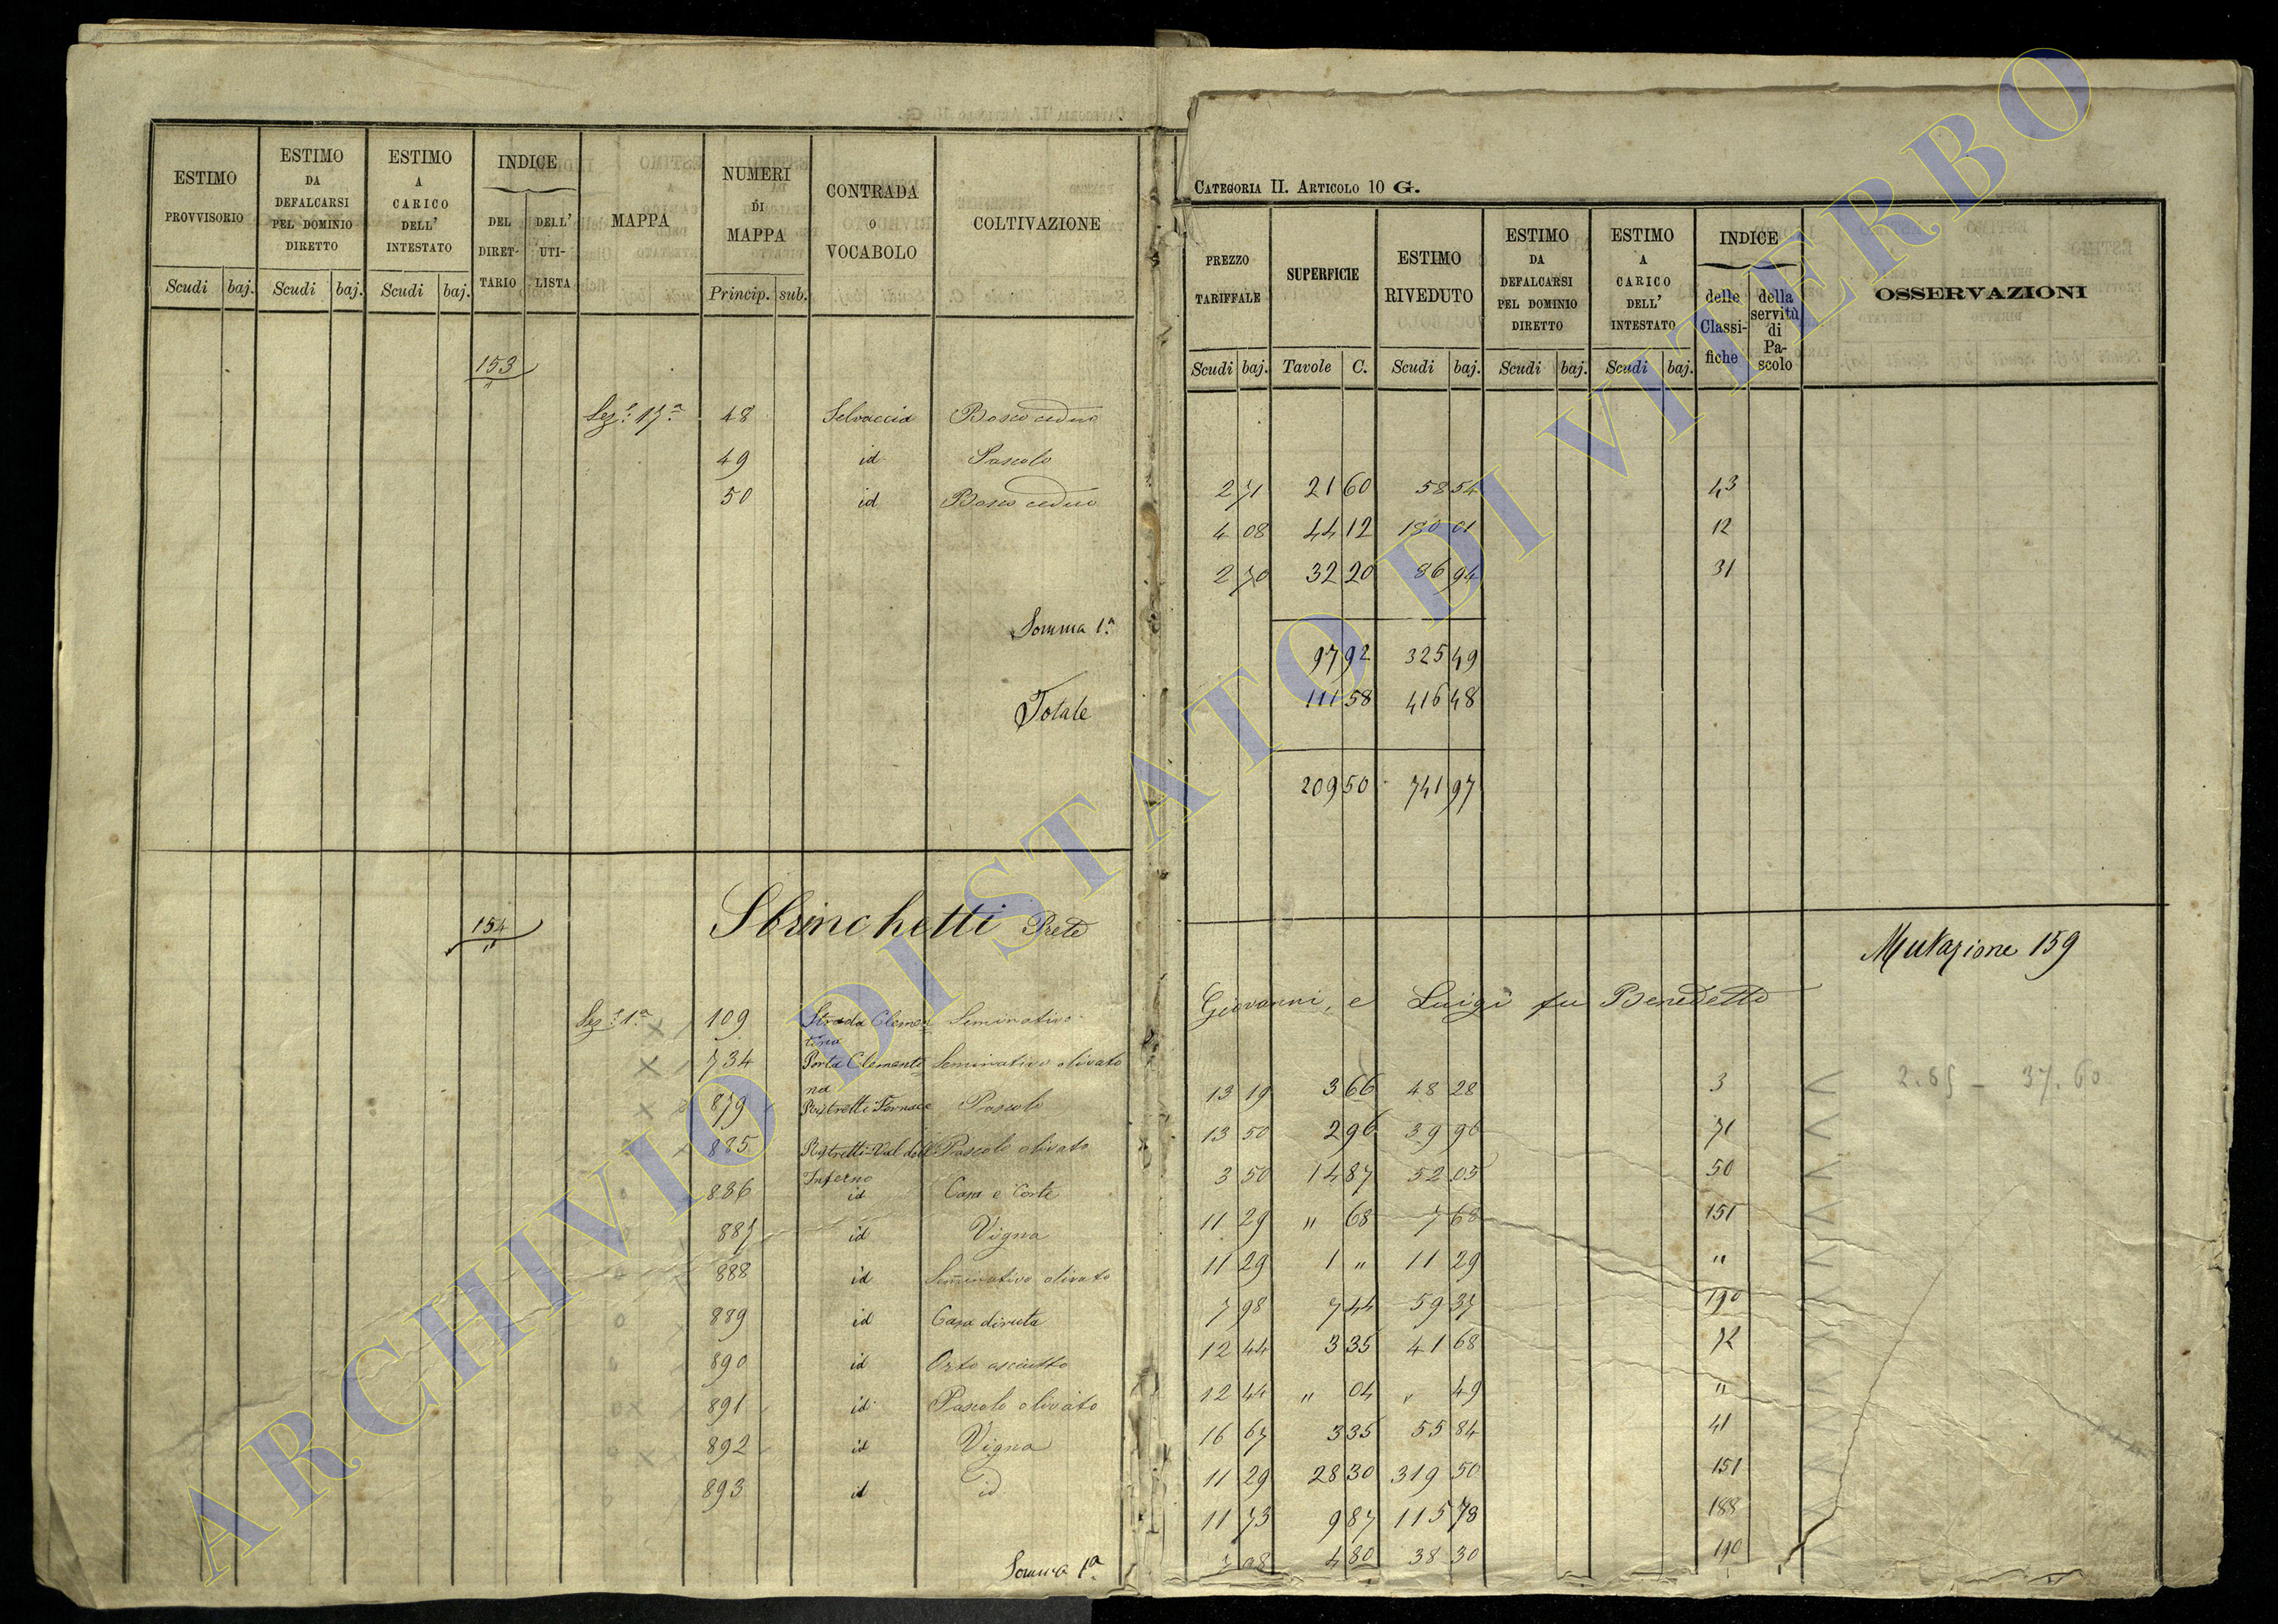 CATEGORIA II. ARTICOLO 10 G.
ESTIMO PROVVISORIO Scudi baj.
ESTIMO DA DEFALCARSI PEL DOMINIO DIRETTO Scudi baj.
ESTIMO A CARICO DELL' INTESTATO Scudi baj.
INDICE DEL DIRET-TARIO DELL' UTI-LISTA
MAPPA
NUMERI DI MAPPA Princip. sub.
CONTRADA O VOCABOLO
COLTIVAZIONE
PREZZO TARIFFALE Scudi baj.
SUPERFICIE Tavole C.
ESTIMO RIVEDUTO Scudi baj.
ESTIMO DA DEFALCARSI PEL DOMINIO DIRETTO Scudi baj.
ESTIMO A CARICO DELL' INTESTATO Scudi baj.
INDICE delle Classi-fiche della servitù di Pa-scolo
OSSERVAZIONI
153
Sez.e 17a 48 Selvaccia Bosco ceduo 2 71 21 60 58 54 43
49 id Pascolo 4 08 44 12 180 01 12
50 id Bosco ceduo 2 70 32 20 86 94 31
Somma 1a 97 92 325 49
111 58 416 48
Totale 209 50 741 97
154 Sbrinchetti Prete Giovanni, e Luigi fu Benedetto Mutazione 159
Sez.e 1a 109 Strada Clementina Seminativo 13 19 3 66 48 28 3
734 Porta Clementina Seminativo olivato 13 50 2 96 39 96 71
879 Ristretti Fornace Pascolo 3 50 14 87 52 05 50
885 Ristretti-Val dell'Inferno Pascolo olivato 11 29 " 68 7 68 151
886 id Casa e Corte 11 29 1 " 11 29 "
887 id Vigna 7 98 7 44 59 37 190
888 id Seminativo olivato 12 44 3 35 41 68 72
889 id Casa diruta 12 44 " 04 " 49 "
890 id Orto asciutto 16 67 3 35 55 84 41
891 id Pascolo olivato 11 29 28 30 319 50 151
892 id Vigna 11 73 9 87 115 78 188
893 id id 7 98 4 80 38 30 190
Somma 1a
ARCHIVIO DI STATO DI VITERBO